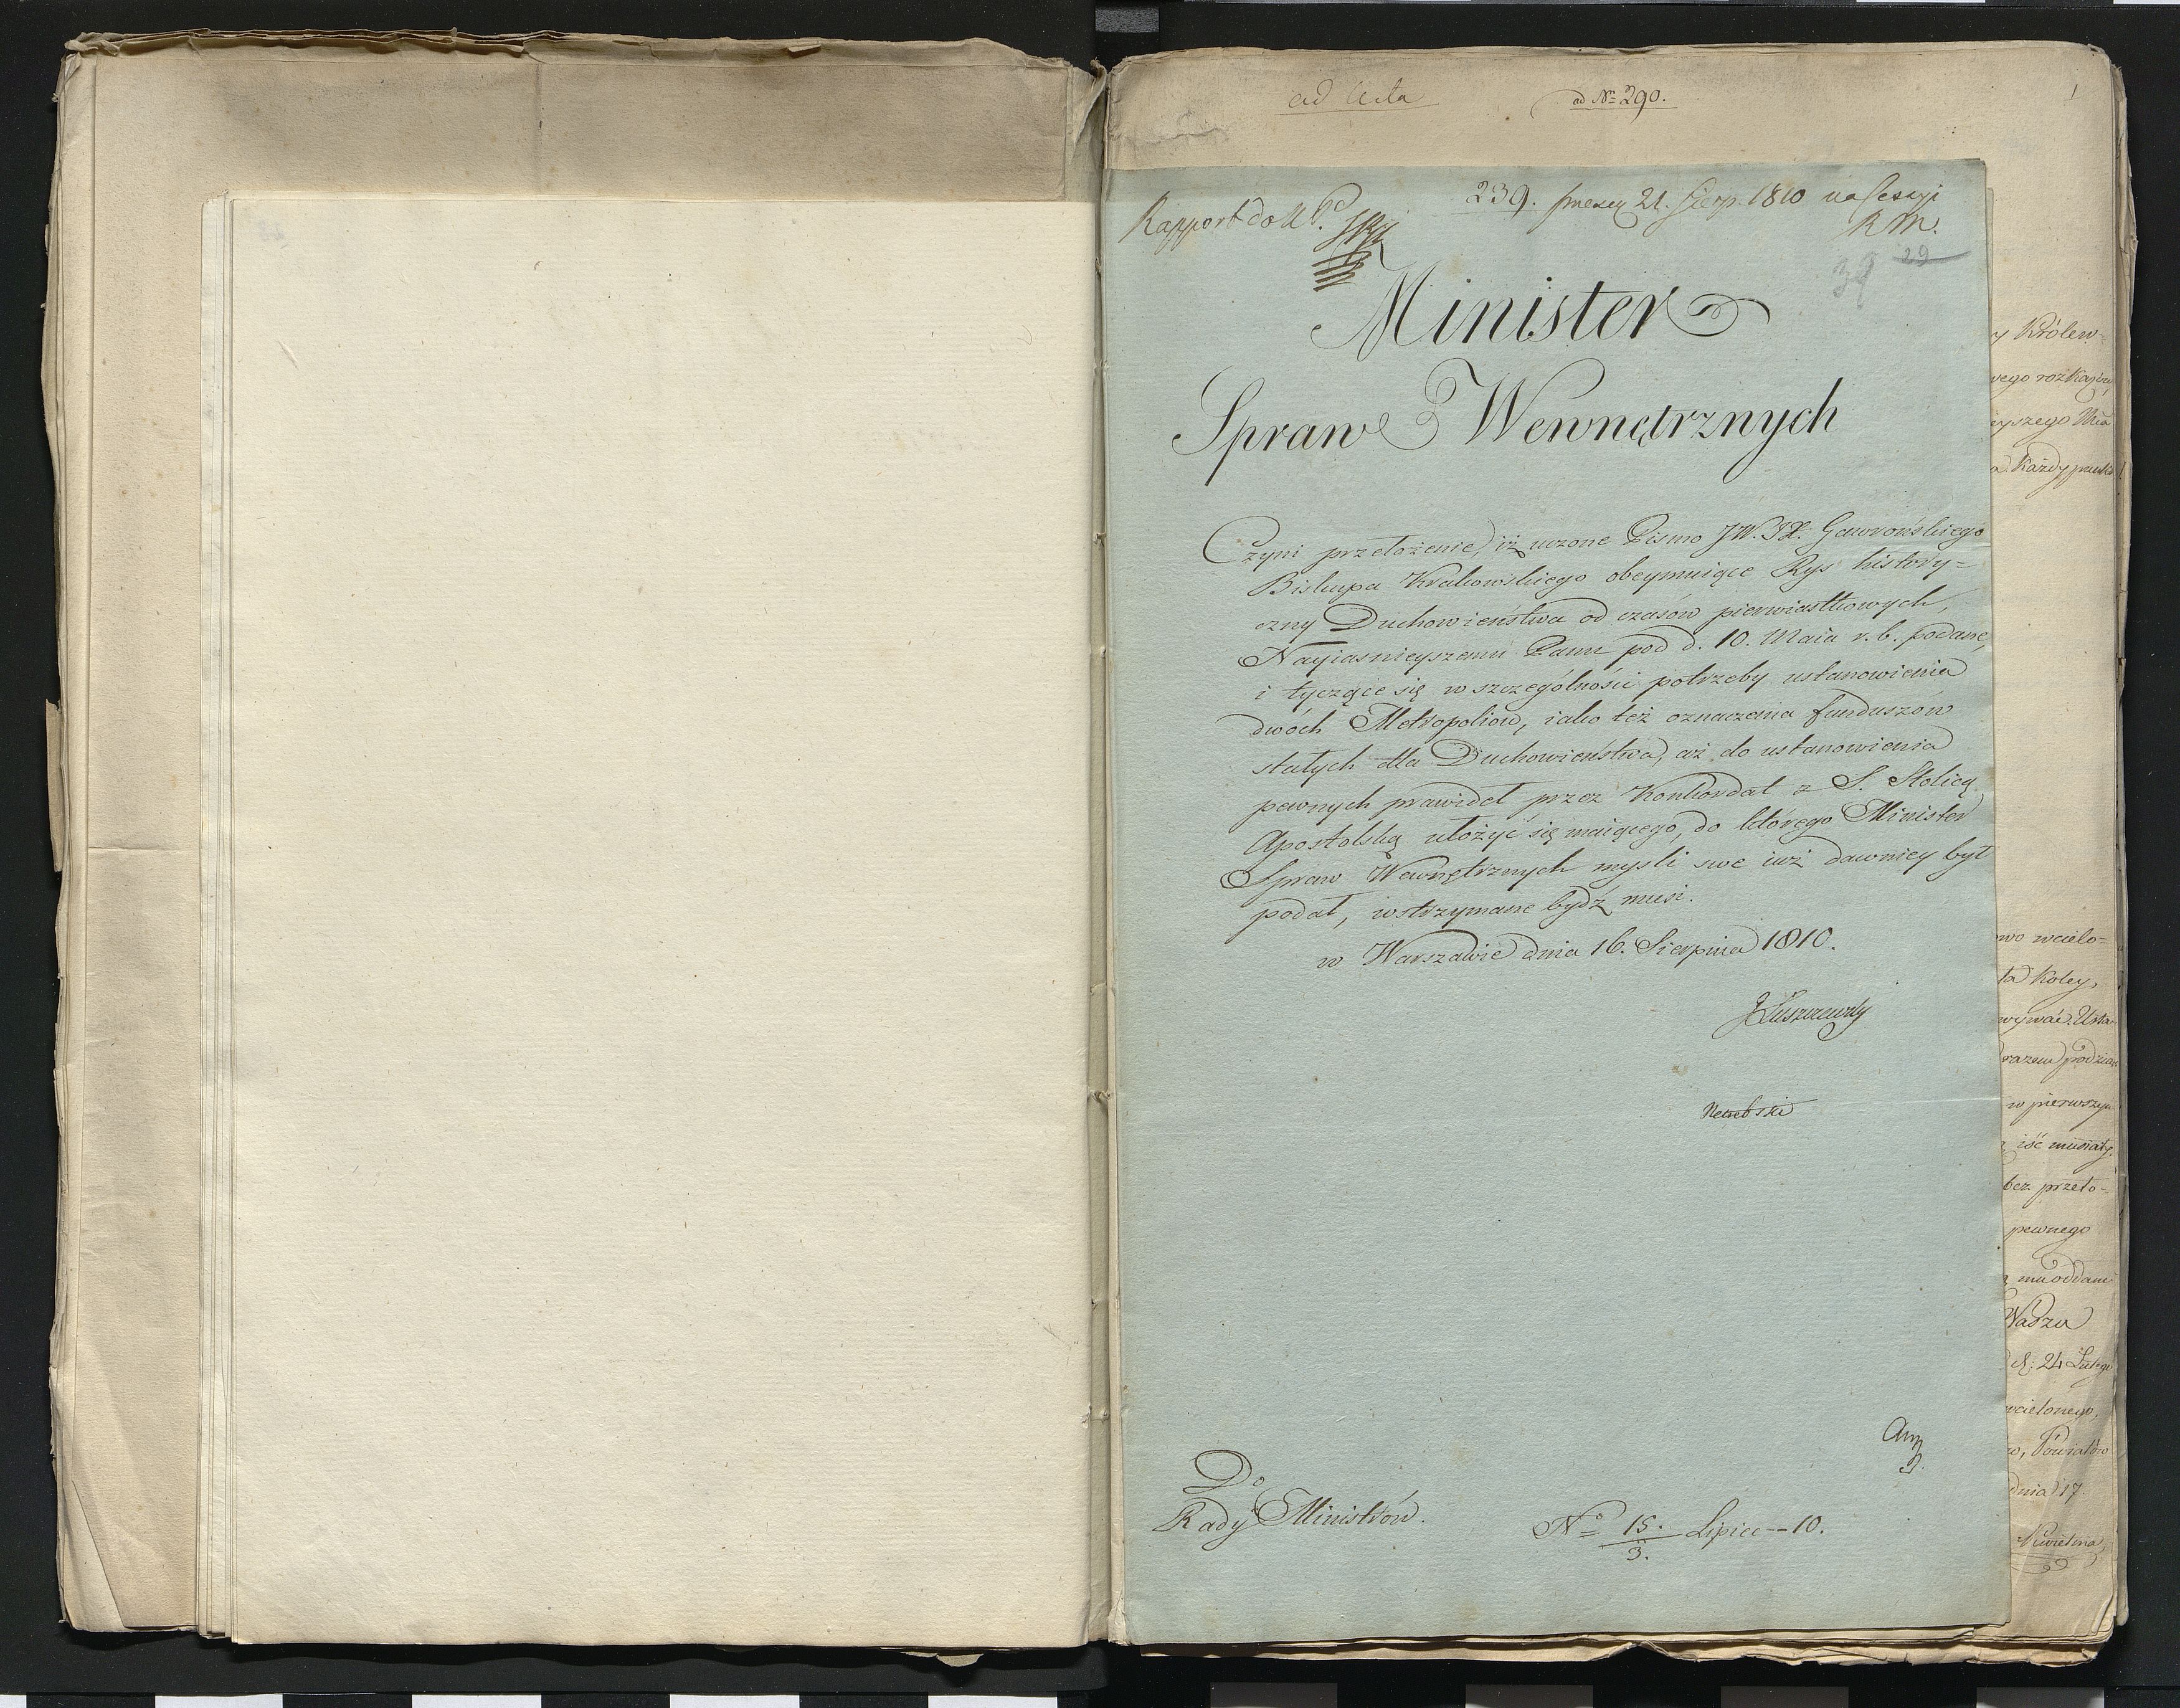 ad Acta
ad No 290.
1
239. praesen 21. Sierp. 1810 na Sessyi
R M.
Rapport do N. P.
29
Minister
Spraw Wewnętrznych
Czyni przełożenie, iż uczone Pismo JW. JX. Gawrońskiego
Biskupa Krakowskiego obeymuiące Rys history=
czny Duchowieństwa od czasów pierwiastkowych,
Nayiasnieyszemu Panu pod d. 10. Maia r. b. podane,
i tyczące się w szczególności potrzeby ustanowienia
dwóch Metropoliow, iako też oznaczenia funduszów
stałych dla Duchowieństwa, aż do ustanowienia
pewnych prawideł przez Konkordat z S. Stolicą
Apostolską ułożyć się maiącego, do którego Minister
Spraw Wewnętrznych mysli swe iuż dawniey był
podał, wstrzymane bydź musi.
w Warszawie dnia 16. Sierpnia 1810.
JŁuszczewsky
Do
Rady Ministrów.
No 15./3. Lipiec--10.
y Królew-
wego rozkazu,
Każdy
owo wcielo=
ta Koley,
wywać. Usta-
razem
w pierwszym
iść musiały,
bez przeło-
pewnego
mu oddane
Wadza
d. 24 Lutego
wcielonego,
Powiatów
dnia 17
Kwietnia,